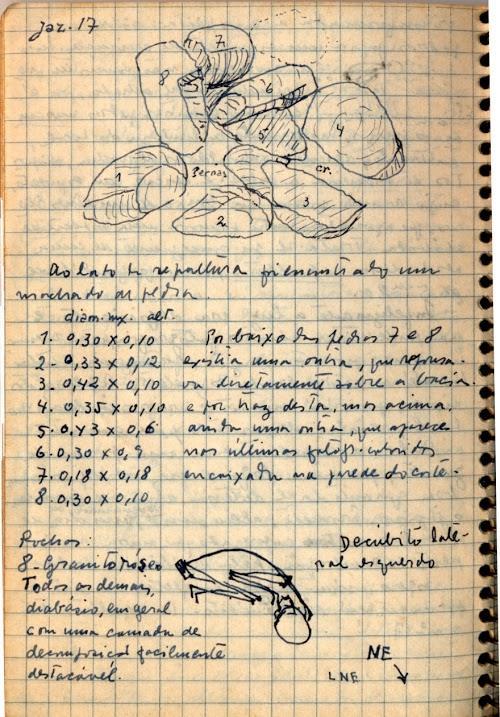 Jaz. 17
7
8
6
5
4
1
Pernas
cr.
3
2
Ao lado da sepultura foi encontrado um
machado de pedra.
diam. mx. alt.
1. 0,30 x 0,10
2 - 0,33 x 0,12
3. 0,42 x 0,10
4. 0,35 x 0,10
5. 0,43 x 0,6
6. 0,30 x 0,9
7. 0,18 x 0,18
8. 0,30 x 0,10
Por baixo das pedras 7 e 8
existia uma outra, que repousa-
va diretamente sobre a bacia.
e por traz desta, mas acima,
ainda uma outra, que aparece
nas últimas fotogr. coloridas
encaixada na parede do corte.
Rochas:
8 - Granito róseo
Todos os demais,
diabásio, em geral
com uma camada de
decomposição facilmente
destacável.
Decúbito late-
ral esquerdo
NE
LNE